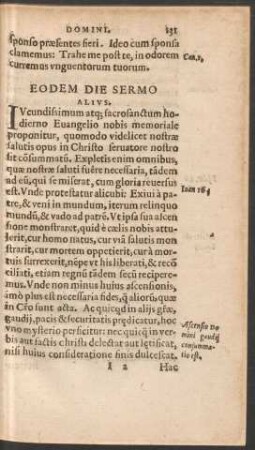 DOMINI. 131
sponso præsentes fieri. Ideo cum sponsa
clamemus: Trahe me post te, in odorem
Can.1,
curremus vnguentorum tuorum.
EODEM DIE SERMO
ALIVS.
IVcundissimum atq; sacrosanctum ho-
dierno Euangelio nobis memoriale
proponitur, quomodo videlicet nostræ
salutis opus in Christo seruatore nostro
sit cōsummatũ. Expletis enim omnibus,
quæ nostræ saluti fuêre necessaria, tãdem
ad eũ, qui se miserat, cum gloria reuersus
est. Vnde protestatur alicubi: Exiui à pa-
Ioan 16
tre, & veni in mundum, iterum relinquo
mundũ, & vado ad patrũ. Vt ipsa sua ascen
sione monstraret, quid è cælis nobis attu-
lerit, cur homo natus, cur viã salutis mon
strarit, cur mortem oppetierit, cur à mor-
tuis surrexerit, nẽpe vt his liberati, & reco
ciliati, etiam regnũ tãdem secũ recipere-
mus. Vnde non minus huius ascensionis,
imò plus est necessaria fides, q̃ aliorũ, quæ
in Cr̃o sunt acta. Ac quicqd in alijs gr̃æ,
gaudij, pacis & securitatis prędicatur, hoc
vno mysterio perficitur: nec quicq̃ in ver-
bis aut factis christi delectat aut lętificat,
nisi huius consideratione finis dulcescat.
Ascensio Do
mini gaudij
consumma-
tio est.
I 2 Hac